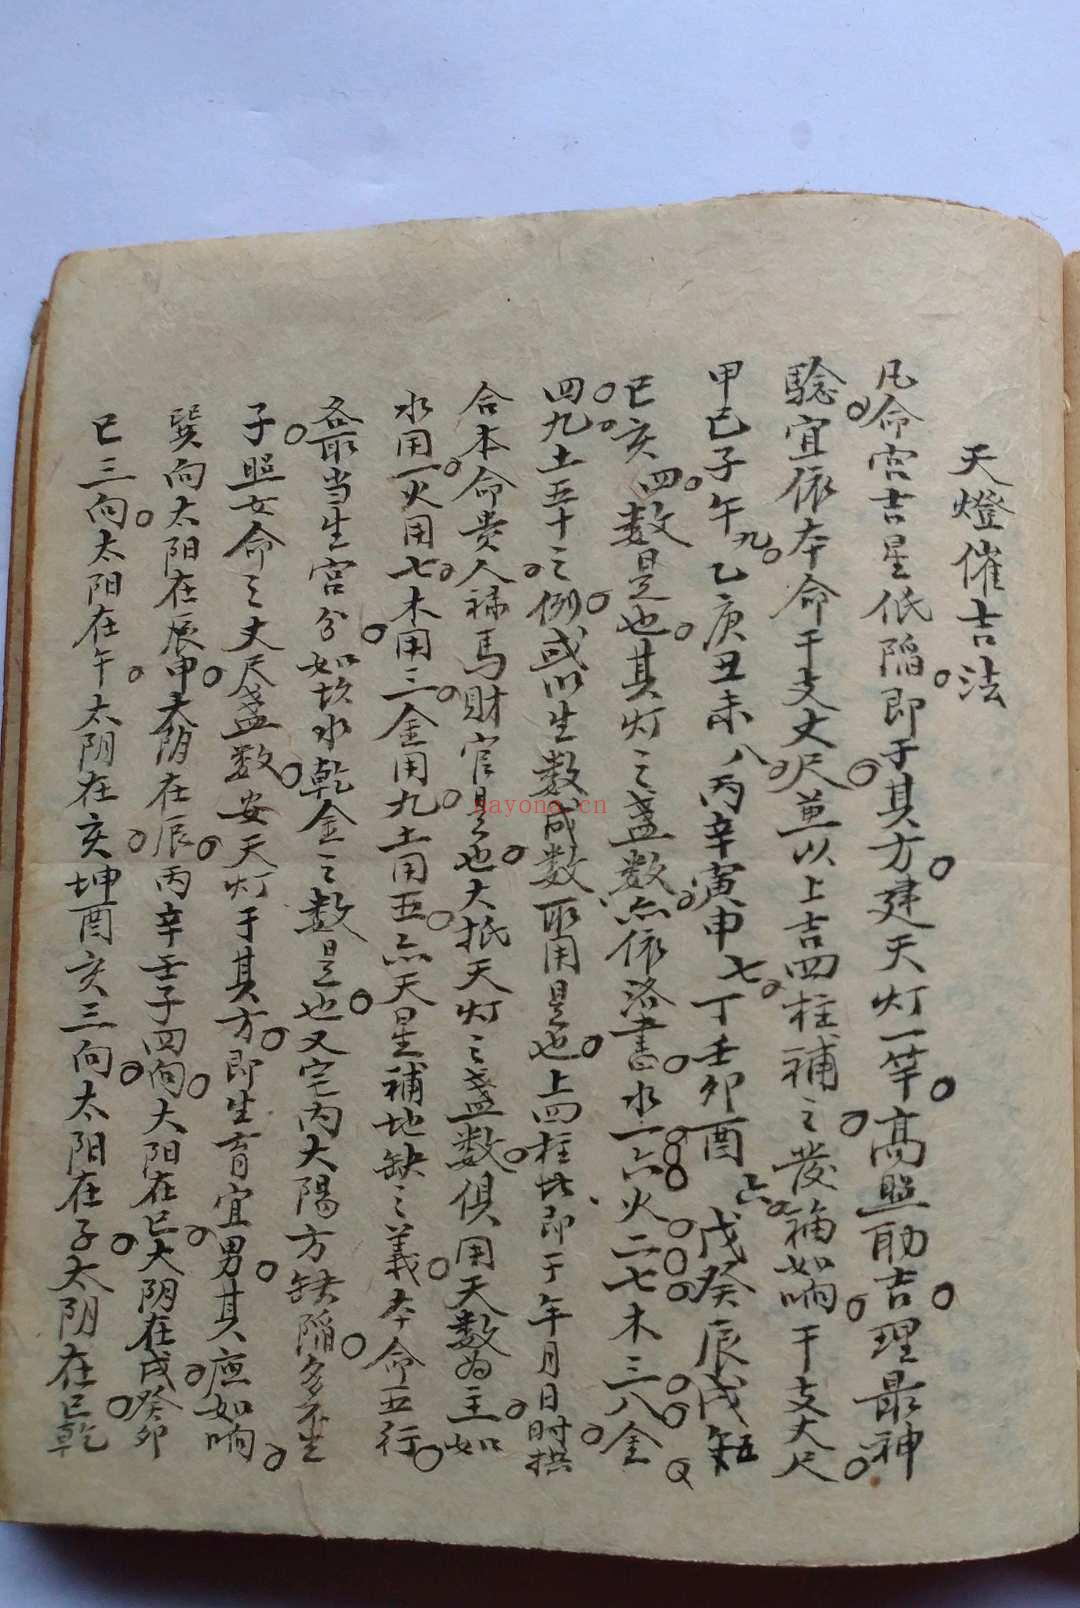 天燈催吉法
凡命宫吉星低陷。即于其方。建天灯一竿。高照助吉。理最神
驗。宜依本命干支丈尺。兼以上吉四柱補之。發福如响。干支丈尺。
甲己子午九。乙庚丑未八。丙辛寅申七。丁壬卯酉六。戊癸辰戌五
巳亥四。数是也。其灯之盏数。亦依洛書。水一六。火二七。木三八。金
四九。土五十之例。或以生数成数取用是也。上四柱此即于年月日时拱
合本命貴人禄馬財官是也。大抵天灯之盏数。俱用天数为主。如
水用一。火用七。木用三。金用九。土用五。亦天星補地缺之義。本命五行。
最当生宫分。如坎水乾金之数是也。又宅内太陽方缺陷。多不生
子。照女命之丈尺盏数。安天灯于其方。即生育宜男。其应如响。
巽向太阳在辰。甲太阴在辰。丙辛壬子四向。太阳在巳。太阴在戌。癸卯
巳三向。太阳在午。太阴在亥。坤酉亥三向。太阳在子。太阴在巳。乾
nayona.cn